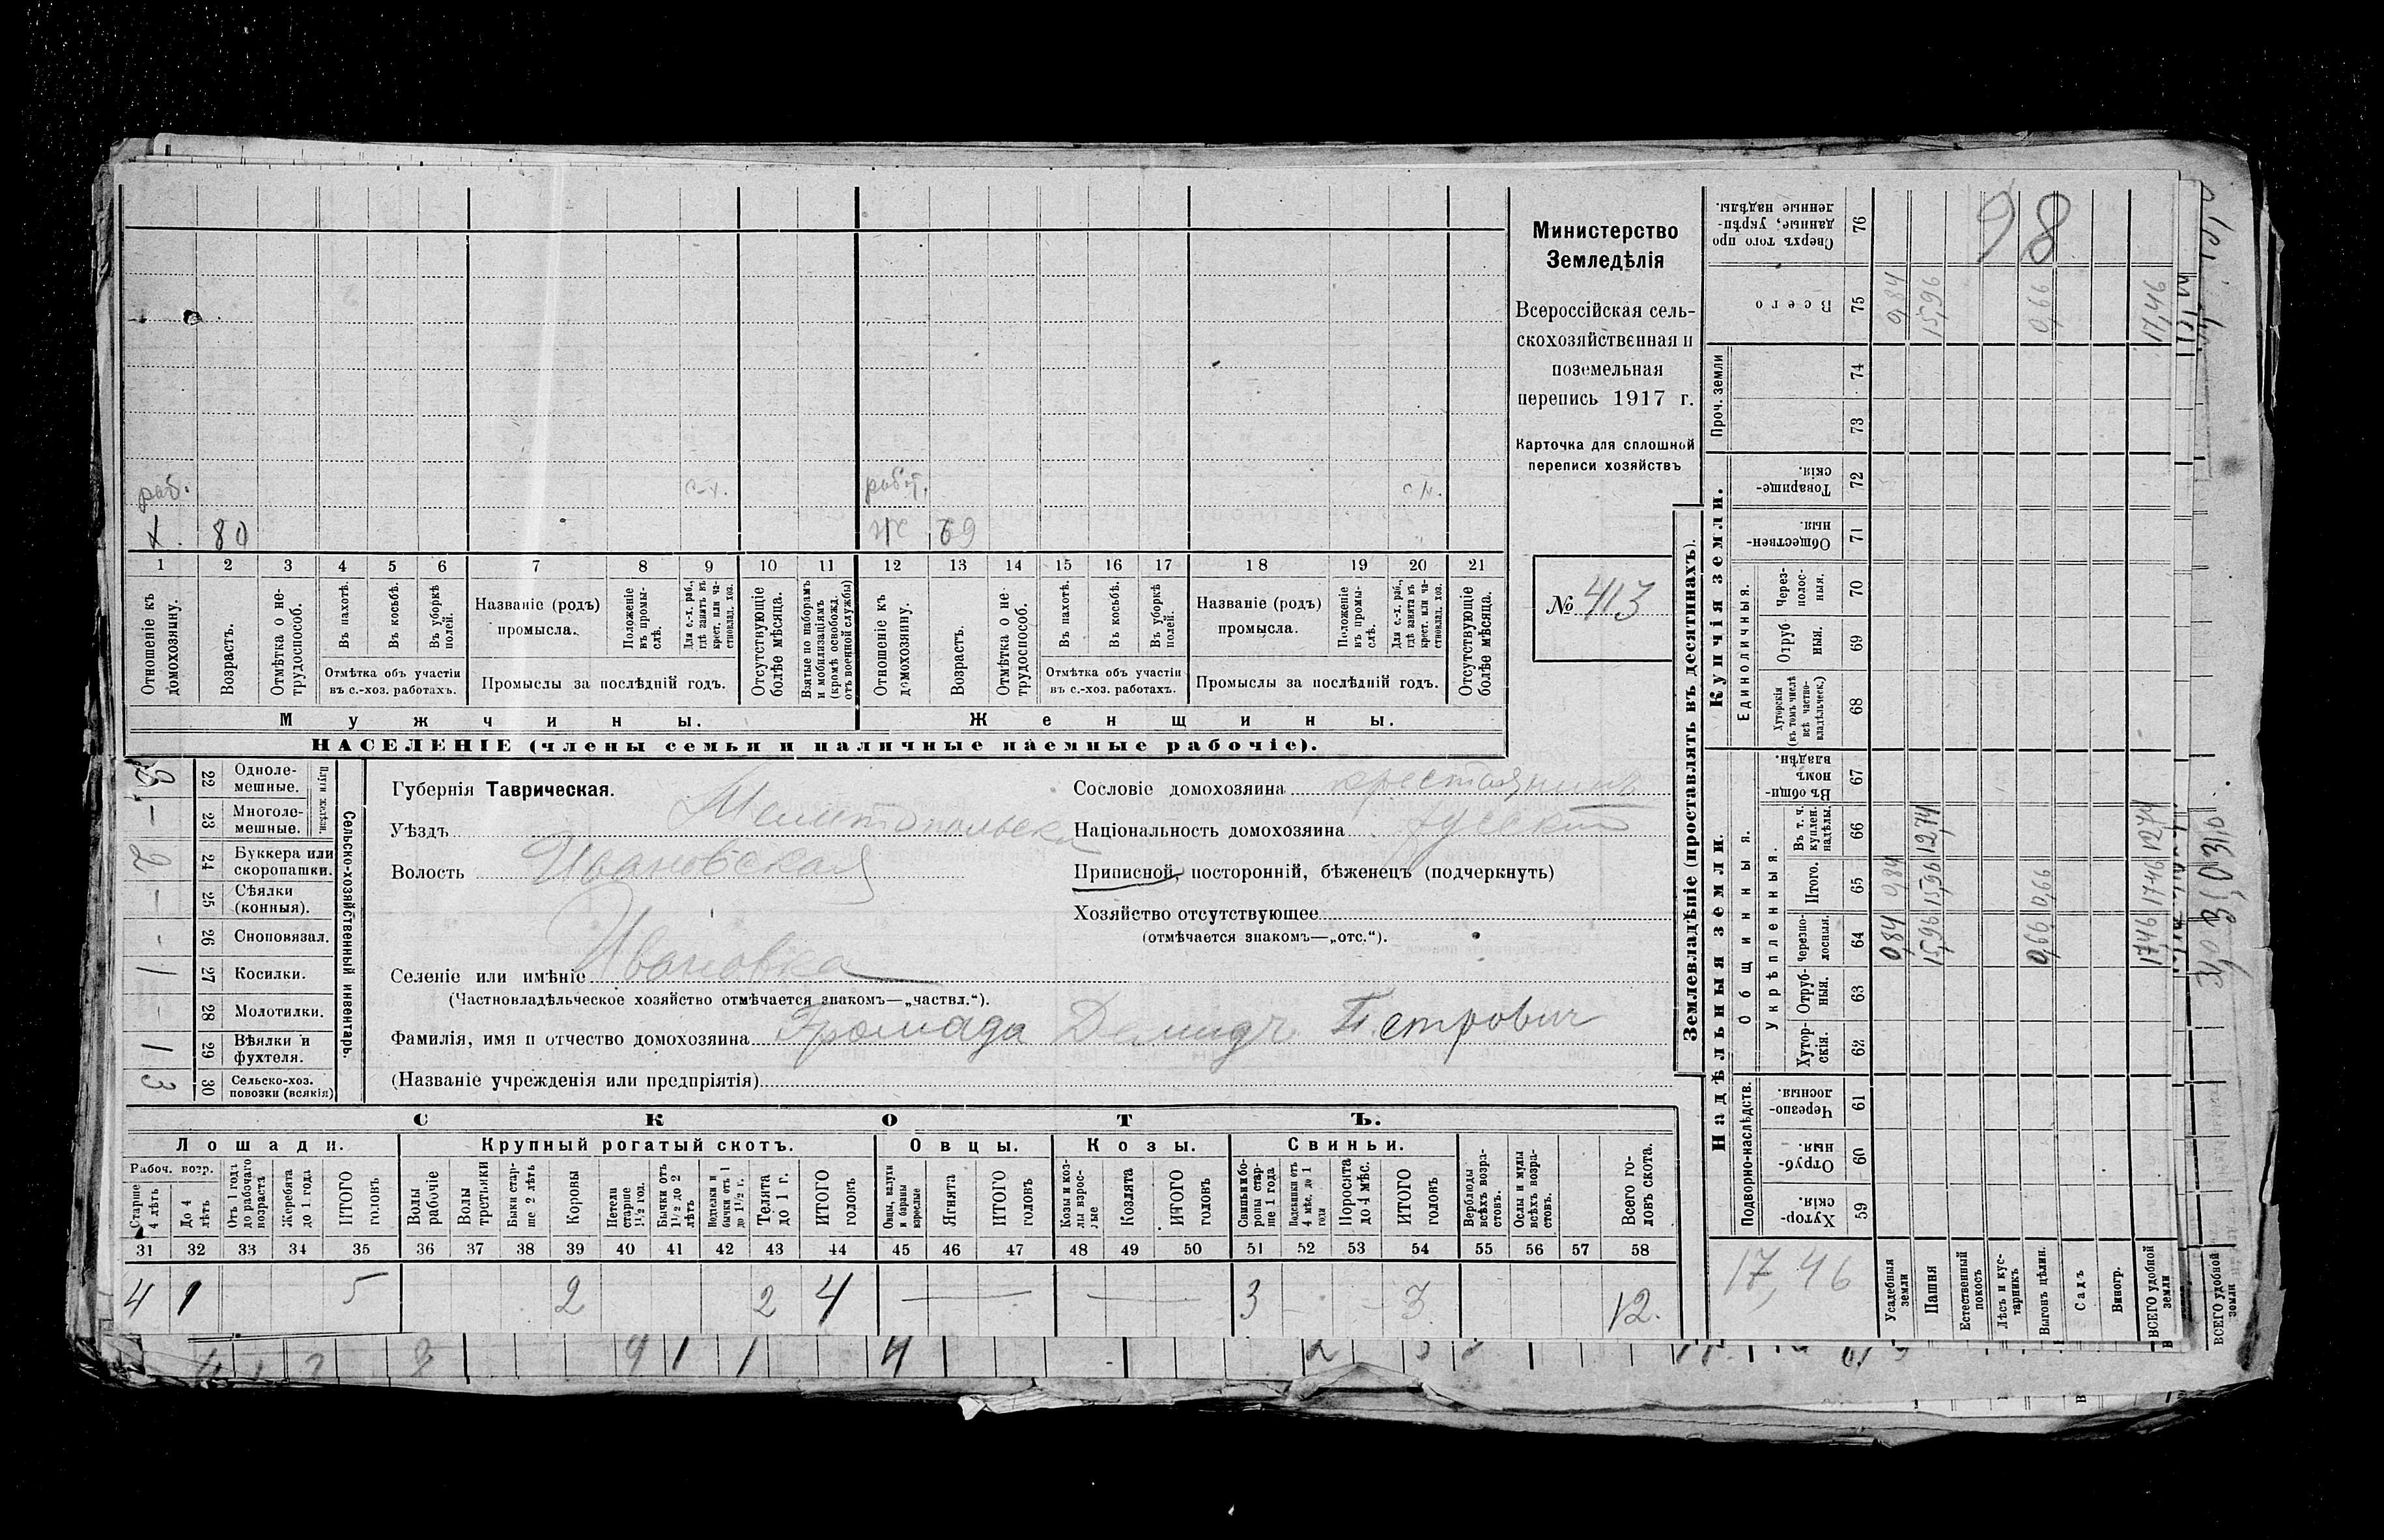 раб. с-х. работ. с-х.
х. 80 же 69
1 2 3 4 5 6 7 8 9 10 11 12 13 14 15 16 17 18 19 20 21
Отношеніе къ домохозяину.
Возрастъ.
Отмѣтка о нетрудоспособ.
Въ пахотѣ.
Въ косьбѣ.
Въ уборкѣ полей.
Отмѣтка объ участіи въ с.-хоз. работахъ.
Названіе (родъ) промысла.
Положеніе въ промыслѣ.
Для с.-х. раб., гдѣ занятъ въ крест. или частновлад. хоз.
Промыслы за послѣдній годъ.
Отсутствующіе болѣе мѣсяца.
Взятые по наборамъ и мобилизаціямъ (кромѣ освобожд. отъ военной службы)
Отношеніе къ домохозяину.
Возрастъ.
Отмѣтка о нетрудоспособ.
Въ пахотѣ.
Въ косьбѣ.
Въ уборкѣ полей.
Отмѣтка объ участіи въ с.-хоз. работахъ.
Названіе (родъ) промысла.
Положеніе въ промыслѣ.
Для с.-х. раб., гдѣ занята въ крест. или частновлад. хоз.
Промыслы за послѣдній годъ.
Отсутствующіе болѣе мѣсяца.
Мужчины. Женщины.
НАСЕЛЕНІЕ (члены семьи и наличные наемные рабочіе).
Министерство
Земледѣлія
Всероссійская сель-
скохозяйственная и
поземельная
перепись 1917 г.
Карточка для сплошной
переписи хозяйствъ
№ 413
Сельско-хозяйственный инвентарь.
Плуги желѣзн.
3 22 Однолемешные.
— 23 Многолемешные.
2 24 Буккера или скоропашки.
— 25 Сѣялки (конныя).
- 26 Сноповязал.
1 27 Косилки.
- 28 Молотилки.
1 29 Вѣялки и фухтеля.
3 30 Сельско-хоз. повозки (всякія)
Губернія Таврическая.
Уѣздъ Мелитопольскій
Волость Ивановская
Селеніе или имѣніе Ивановка
(Частновладѣльческое хозяйство отмѣчается знакомъ—„частвл.“).
Фамилія, имя и отчество домохозяина Громада Демидъ Петровичъ
(Названіе учрежденія или предпріятія)
Сословіе домохозяина крестьянинъ
Національность домохозяина русскій
Приписной, посторонній, бѣженецъ (подчеркнуть)
Хозяйство отсутствующее
(отмѣчается знакомъ—„отс.“).
СКОТЪ.
Лошади. Крупный рогатый скотъ. Овцы. Козы. Свиньи.
Рабоч. возр.
Старше 4 лѣтъ
До 4 лѣтъ
Отъ 1 года до рабочаго возраста
Жеребята до 1 года
ИТОГО головъ
Волы рабочіе
Волы третьяки
Быки старше 2 лѣтъ
Коровы
Нетели старше 1½ год.
Бычки отъ 1½ до 2 лѣтъ
Нетелки и бычки отъ 1 до 1½ г.
Телята до 1 г.
ИТОГО головъ
Овцы, валухи и бараны взрослые
Ягнята
ИТОГО головъ
Козы и козлы взрослые
Козлята
ИТОГО головъ
Свиньи боровы старше 1 года
Подсвинки отъ 4 мѣс. до 1 года
Поросята до 4 мѣс.
ИТОГО головъ
Верблюды всѣхъ возрастовъ.
Ослы и мулы всѣхъ возрастовъ.
Всего головъ скота.
31 32 33 34 35 36 37 38 39 40 41 42 43 44 45 46 47 48 49 50 51 52 53 54 55 56 57 58
4 1 5 2 2 4 — — 3 - - 3 12.
Землевладѣніе (проставлять въ десятинахъ).
Надѣльныя земли. Купчія земли. Проч. земли
Подворно-наслѣдств. Общинныя. Укрѣпленныя. Единоличныя.
59 Хуторскія
60 Отрубныя.
61 Черезполосныя
62 Хуторскія.
63 Отрубныя.
64 Черезполосныя.
65 Итого.
66 Въ т. ч. куплен. надѣлы.
67 Въ общинномъ владѣн.
68 Хуторскія (въ томъ числѣ всѣ частновладѣльческ.)
69 Отрубныя.
70 Черезполосныя.
71 Общественныя.
72 Товарищескія.
73
74
75 Всего
76 Сверхъ того проданные, укрѣпленные надѣлы.
98
17,46
Усадебныя земли 0,84 0,84 0,84
Пашня 15,96 15,96 12,74 15,96
Естественный покосъ
Лѣсъ и кустарникъ
Выгонъ цѣлин. 0,66 0,66 0,66
Садъ
Виногр.
ВСЕГО удобной земли 17,46 17,46 12,74 17,46
ВСЕГО удобной земли